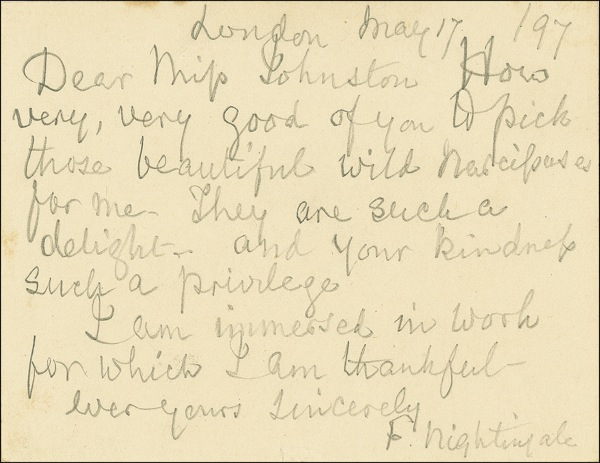 London May 17 /97
Dear Miss Johnston How
very, very good of you to pick
those beautiful wild Narcissuses
for me - They are such a
delight - and your kindness
such a privilege
I am immersed in work
for which I am thankful -
ever yours sincerely
F. Nightingale